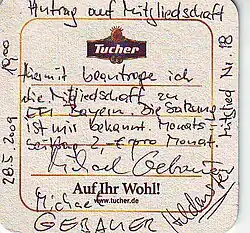 Antrag auf Mitgliedschaft
Tucher
Hiermit beantrage ich
die Mitgliedschaft zu
Bayern. Die Satzung
ist mir bekannt. Monats-
2,-€ pro Monat.
Michael Gebauer
Auf Ihr Wohl!
www.tucher.de
Michael
GEBAUER
28.5.2009
19:00
Mitglied Nr. 18